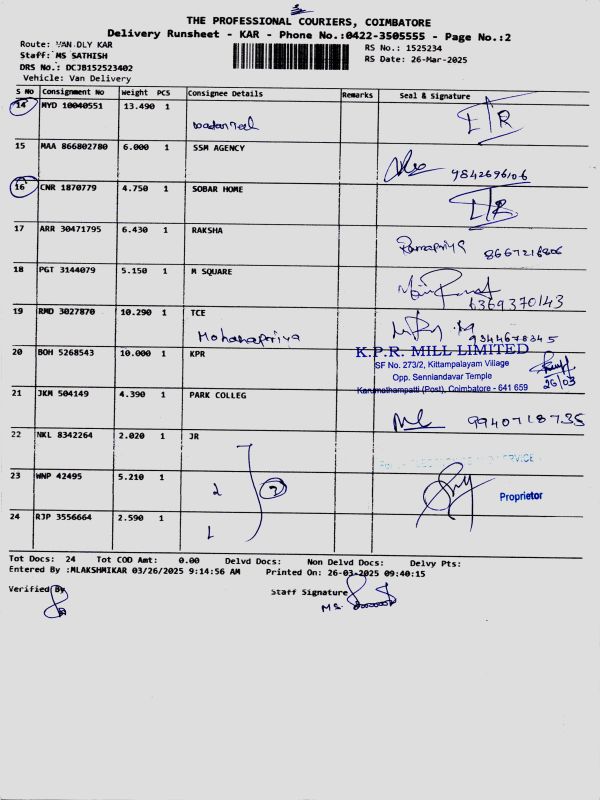 THE PROFESSIONAL COURIERS, COIMBATORE
Delivery Runsheet - KAR - Phone No.:0422-3505555 - Page No.:2
Route: VAN DLY KAR
RS No.: 1525234
Staff: MS SATHISH
RS Date: 26-Mar-2025
DRS No.: DCJB152523402
Vehicle: Van Delivery
S No Consignment No Weight PCS Consignee Details Remarks Seal & Signature
14 MYD 10040551 13.490 1
I/R
15 MAA 866802780 6.000 1 SSM AGENCY
9842696106
16 CNR 1870779 4.750 1 SOBAR HOME
I/R
17 ARR 30471795 6.430 1 RAKSHA
Ramapriya 8667216806
18 PGT 3144079 5.150 1 M SQUARE
6369370143
19 RMD 3027870 10.290 1 TCE
Mohanapriya 9344678345
20 BOH 5268543 10.000 1 KPR
K.P.R. MILL LIMITED
SF No. 273/2, Kittampalayam Village
Opp. Senniandavar Temple
Karumathampatti (Post), Coimbatore - 641 659
26/03
21 JKM 504149 4.390 1 PARK COLLEG
9940718735
22 NKL 8342264 2.020 1 JR
23 WNP 42495 5.210 1
2
Proprietor
24 RJP 3556664 2.590 1
Tot Docs: 24 Tot COD Amt: 0.00 Delvd Docs: Non Delvd Docs: Delvy Pts:
Entered By :MLAKSHMIKAR 03/26/2025 9:14:56 AM Printed On: 26-03-2025 09:40:15
Verified By
Staff Signature